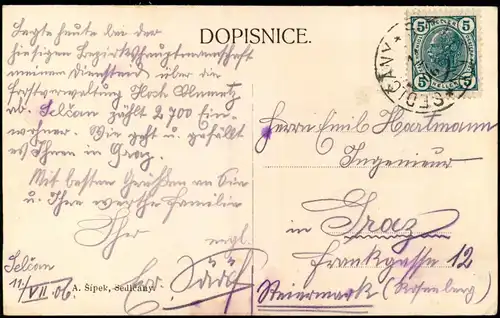 DOPISNICE.
Legte heute bei der
hiesigen Bezirkshauptmannschaft
meinen Diensteid über die
Forstverwaltung Hoch Chlumetz
ab. Selčan zählt 2700 Ein-
wohner. Wie geht u. gefällt
es Ihnen in Graz.
Mit besten Grüßen an Sie
u. Ihre werthe Familie
Ihr
ergb.
Selčan
11/VII. 06.
A. Šípek, Sedlčany.
5 5
5 5
HELLER
SEDLČANY
Herrn Emil Hartmann
Ingenieur
in Graz
Frankgasse 12
Steiermark (Rosenberg)